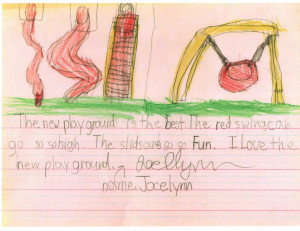 The new playgraund is the best. The red swing can
go so so high. The slids are so so Fun. I Love the
new playgraund. Jocelynn
name Jocelynn